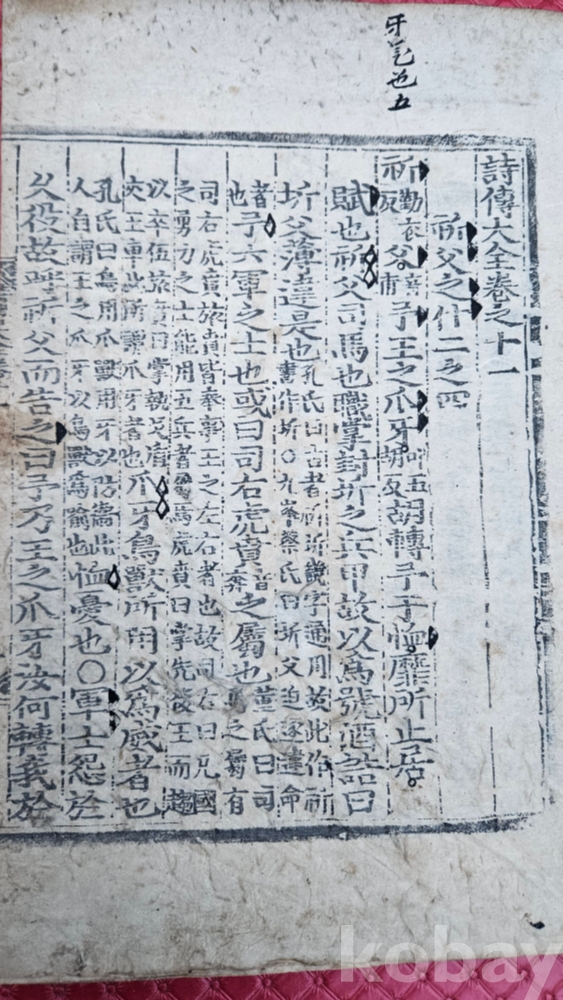 牙 也五
詩傳大全卷之十一
祈父之什二之四
祈勤衣反父音甫予王之爪牙叶五胡反胡轉予于恤靡所止居
賦也祈父司馬也職掌封圻之兵甲故以爲號酒誥曰
圻父薄違是也孔氏曰古者祈圻畿字通用故此作祈書作圻○九峯蔡氏曰圻父迫逐違命
者也予六軍之士也或曰司右虎賁音奔之屬也董氏曰司勇之屬有
司右虎賁旅賁皆奉事王之左右者也故司右曰凡國之勇力之士能用五兵者屬焉虎賁曰掌先後王而趨
以卒伍旅賁曰掌執戈盾夾王車此所謂爪牙者也爪牙鳥獸所用以爲威者也
孔氏曰鳥用爪獸用牙以防衛此人自謂王之爪牙以鳥獸爲喩也恤憂也○軍士怨於
久役故呼祈父而告之曰予乃王之爪牙汝何轉我於
kobay